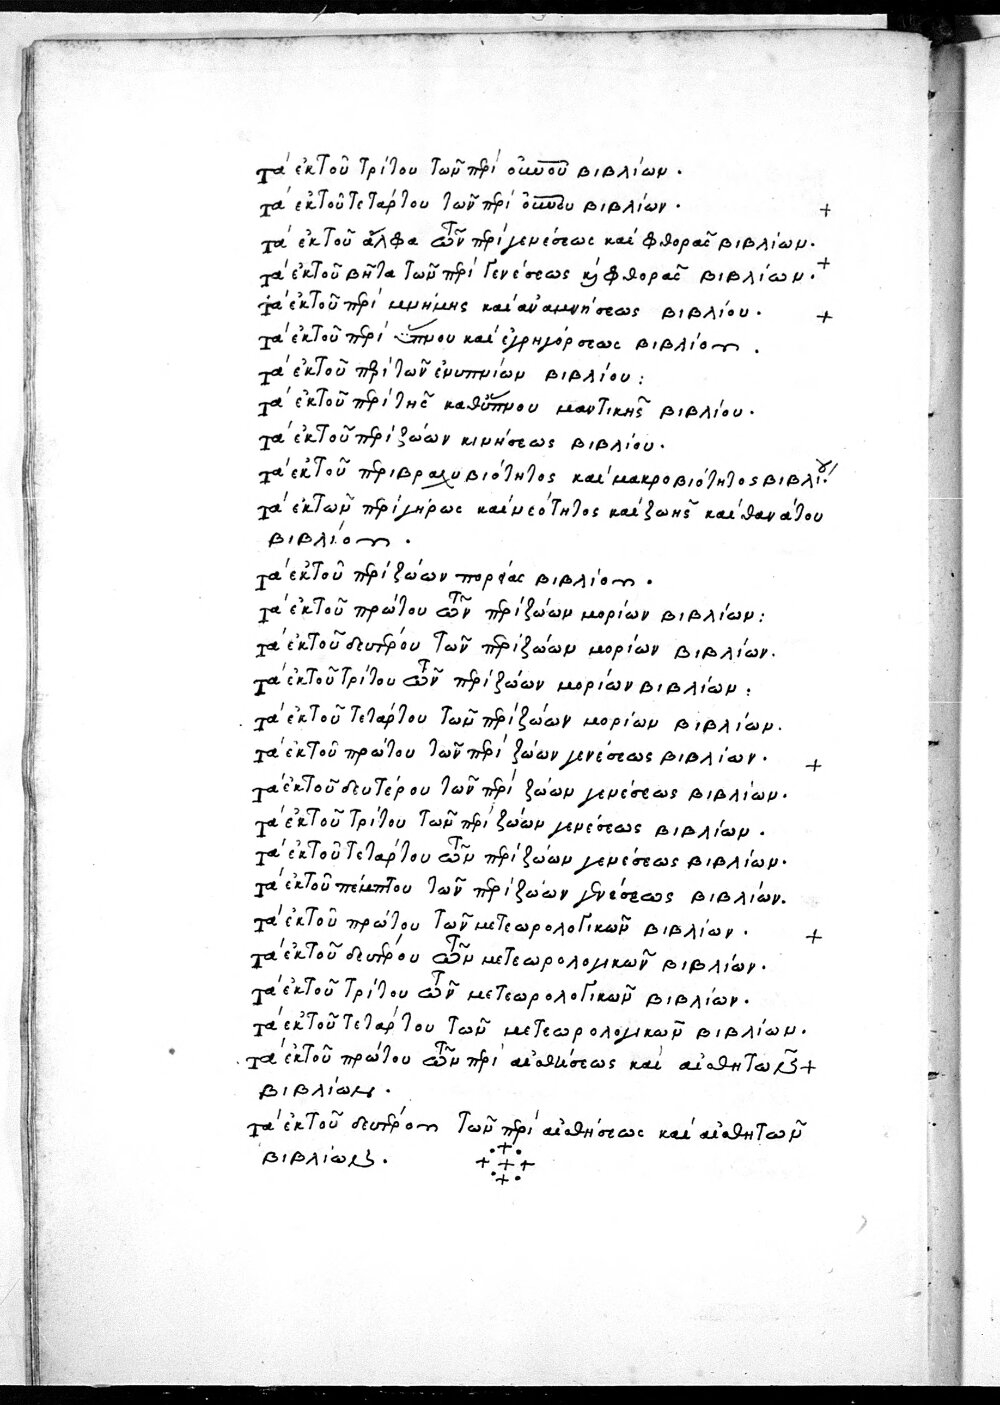 τὰ ἐκ τοῦ τρίτου τῶν περὶ οὐνοῦ βιβλίων.
τὰ ἐκ τοῦ τετάρτου τῶν περὶ οὐνοῦ βιβλίων. +
τὰ ἐκ τοῦ ἄλφα τῶν περὶ γενέσεως καὶ φθορᾶς βιβλίων.
τὰ ἐκ τοῦ βῆτα τῶν περὶ γενέσεως κ φθορᾶς βιβλίων. +
τὰ ἐκ τοῦ περὶ μνήμης καὶ ἀναμνήσεως βιβλίου. +
τὰ ἐκ τοῦ περὶ ὕπνου καὶ ἐγρηγόρσεως βιβλίου.
τὰ ἐκ τοῦ περὶ τῶν ἐνυπνίων βιβλίου:
τὰ ἐκ τοῦ περὶ τῆς καθύπνου μαντικῆς βιβλίου.
τὰ ἐκ τοῦ περὶ ζώων κινήσεως βιβλίου.
τὰ ἐκ τοῦ περὶ βραχυβιότητος καὶ μακροβιότητος βιβλίου.
τὰ ἐκ τῶν περὶ γήρως καὶ νεότητος καὶ ζωῆς καὶ θανάτου
βιβλίου.
τὰ ἐκ τοῦ περὶ ζώων πορείας βιβλίου.
τὰ ἐκ τοῦ πρώτου τῶν περὶ ζώων μορίων βιβλίων:
τὰ ἐκ τοῦ δευτέρου τῶν περὶ ζώων μορίων βιβλίων.
τὰ ἐκ τοῦ τρίτου τῶν περὶ ζώων μορίων βιβλίων:
τὰ ἐκ τοῦ τετάρτου τῶν περὶ ζώων μορίων βιβλίων.
τὰ ἐκ τοῦ πρώτου τῶν περὶ ζώων γενέσεως βιβλίων. +
τὰ ἐκ τοῦ δευτέρου τῶν περὶ ζώων γενέσεως βιβλίων.
τὰ ἐκ τοῦ τρίτου τῶν περὶ ζώων γενέσεως βιβλίων.
τὰ ἐκ τοῦ τετάρτου τῶν περὶ ζώων γενέσεως βιβλίων.
τὰ ἐκ τοῦ πέμπτου τῶν περὶ ζώων γενέσεως βιβλίων.
τὰ ἐκ τοῦ πρώτου τῶν μετεωρολογικῶν βιβλίων. +
τὰ ἐκ τοῦ δευτέρου τῶν μετεωρολογικῶν βιβλίων.
τὰ ἐκ τοῦ τρίτου τῶν μετεωρολογικῶν βιβλίων.
τὰ ἐκ τοῦ τετάρτου τῶν μετεωρολογικῶν βιβλίων.
τὰ ἐκ τοῦ πρώτου τῶν περὶ αἰσθήσεως καὶ αἰσθητῶν +
βιβλίων.
τὰ ἐκ τοῦ δευτέρου τῶν περὶ αἰσθήσεως καὶ αἰσθητῶν
βιβλίων.